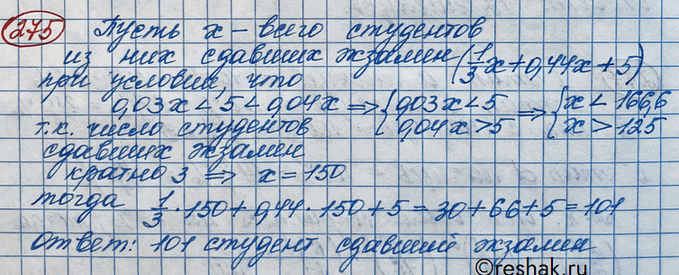 275 Пусть x – всего студентов
из них сдавших экзамен (1/3x+0,44x+5)
при условии, что
0,03x<5<0,04x ⇒ {0,03x<5 0,04x>5 ⇒ {x<166,6 x>125
т.к. число студентов
сдавших экзамен
кратно 3 ⇒ x=150
тогда 1/3·150+0,44·150+5=30+66+5=101
Ответ: 101 студент сдавший экзамен
©reshak.ru